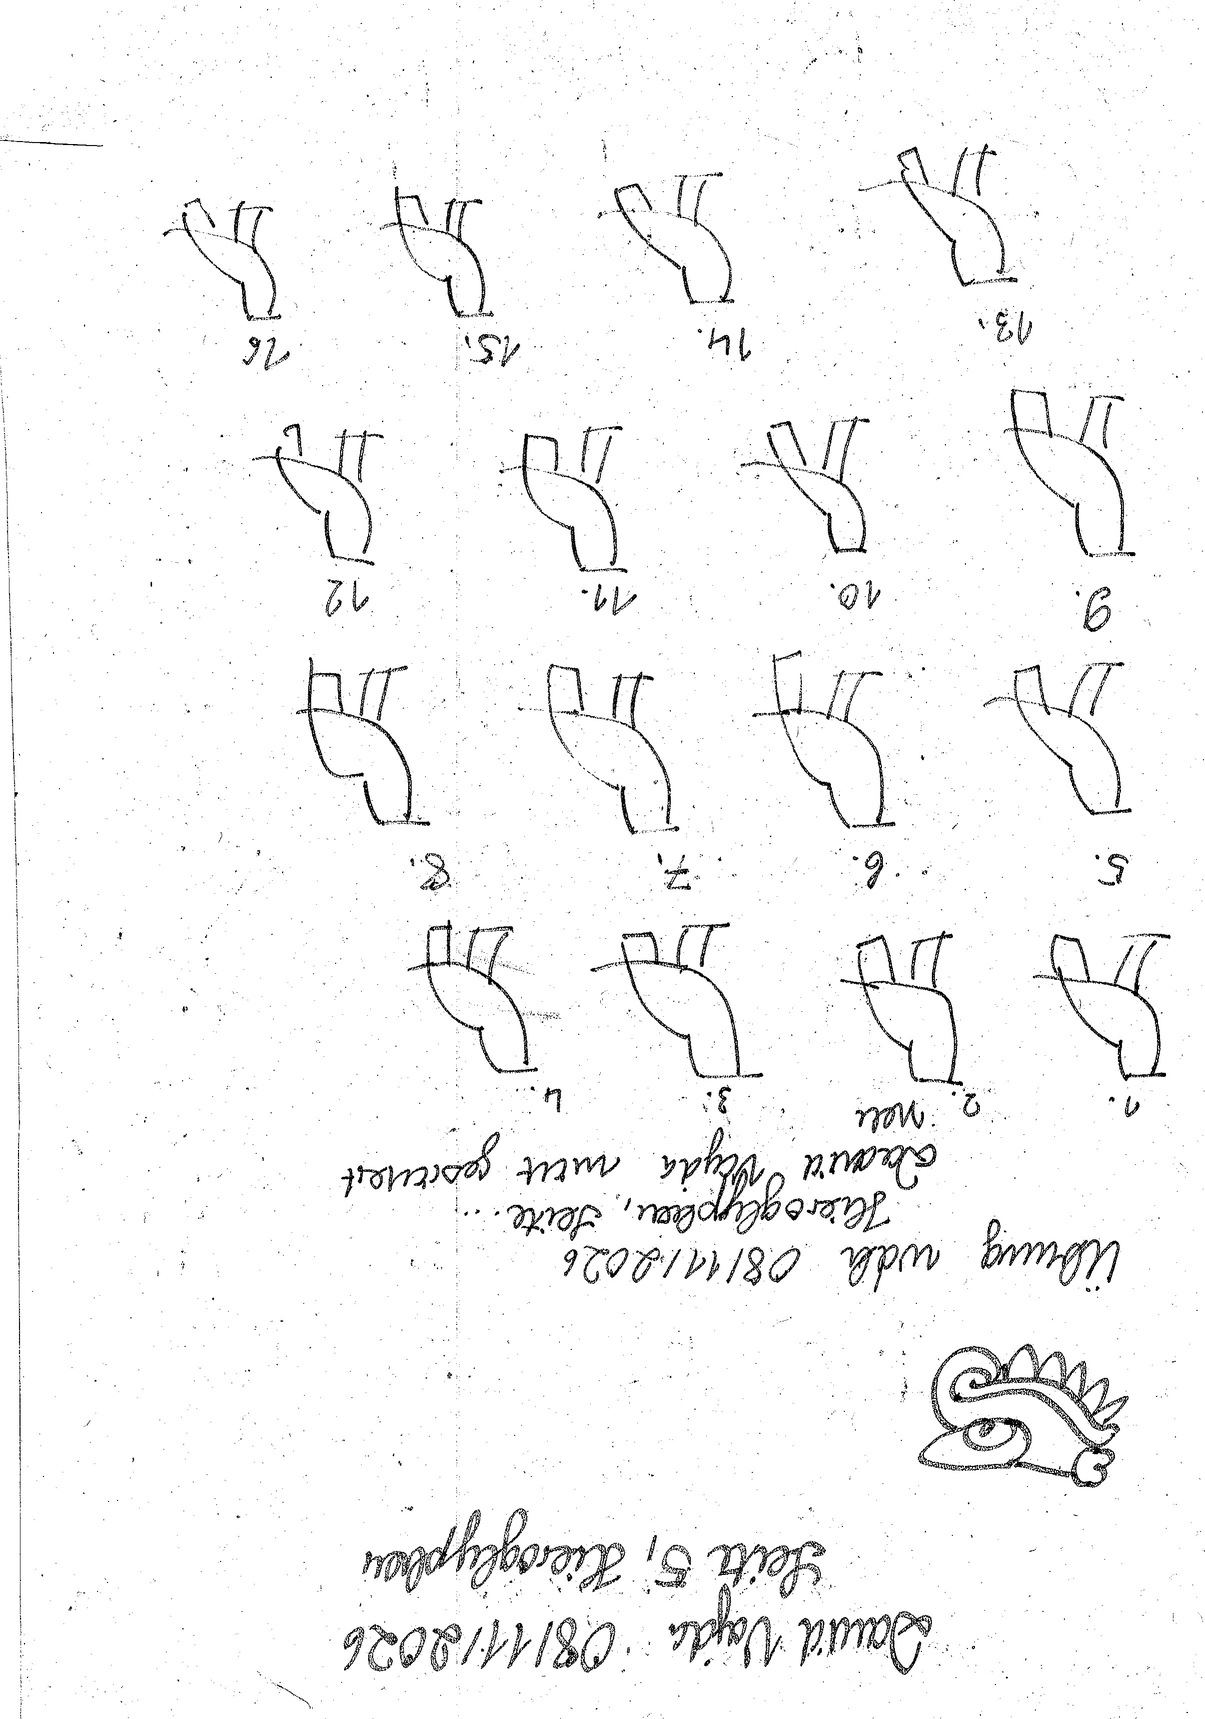 David Vajda 08/11/2026
Seite 5, Hieroglyphen
Übung wdh 08/11/2026
Hieroglyphen, Seite...
David Vajda nicht gescannt
neu
1. 2. 3. 4.
5. 6. 7. 8.
9. 10. 11. 12
13. 14. 15. 16